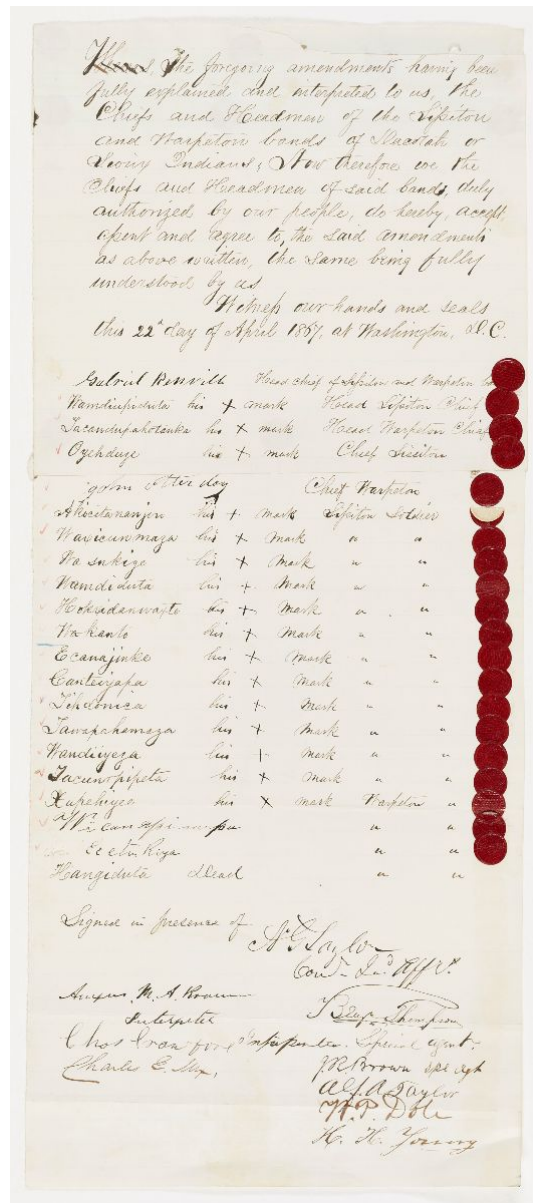 the foregoing amendments having been
fully explained and interpreted to us, the
Chiefs and Headmen of the Sissiton
and Warpeton bands of Dacotah or
Sioux Indians, Now therefore we the
Chiefs and Headmen of said bands, duly
authorized by our people, do hereby, accept
assent and agree to, the said amendments
as above written, the same being fully
understood by us
Witness our hands and seals
this 22d day of April 1867, at Washington, D.C.
Gabriel Renvill Head chief of Sissiton and Warpeton
Wamdiupiduta his + mark Head Sissiton Chief
Tacandupahotanka his + mark Head Warpeton Chief
Oyehduze his + mark Chief Sissiton
John Otter day Chief Warpeton
Akicitananjin his + mark Sissiton Soldier
Waxicunmaza his + mark " "
Wasukiye his + mark " "
Wamdiduta his + mark " "
Hokxidanwaxte his + mark " "
Wakanto his + mark " "
Ecanajinke his + mark " "
Canteiyapa his + mark " "
Tihdonica his + mark " "
Tawapahamaza his + mark " "
Wandiiyeza his + mark " "
Tacunrpipeta his + mark " "
Xupehiyu his × mark Warpeton "
" "
Ecetukiya " "
Hangiduta Dead " "
Signed in presence of
N G Taylor
Com. Ind Affs.
M. A. Brown
Interpreter
Benj. Thompson
Chas Crawford Interpreter. Special agent.
Charles E. Mix,
J. R Brown spe agt
Alf. A. Taylor
H. H. Young